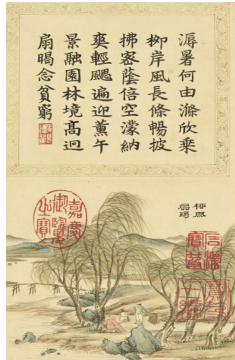 溽暑何由滌欣乘
柳岸風長條暢披
拂密蔭倍空濛納
爽輕颸遍迎薰午
景融園林境髙迥
扇暍念貧窮
柳風
扇暍
嘉慶
御覽
之寶